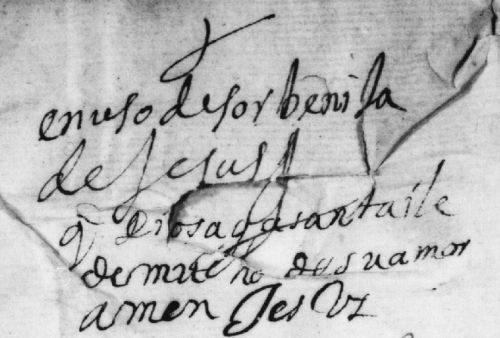 en uso de sor benita
de Jesus
q̃ Dios aga santa i le
de mucho de su amor
amen Jesus